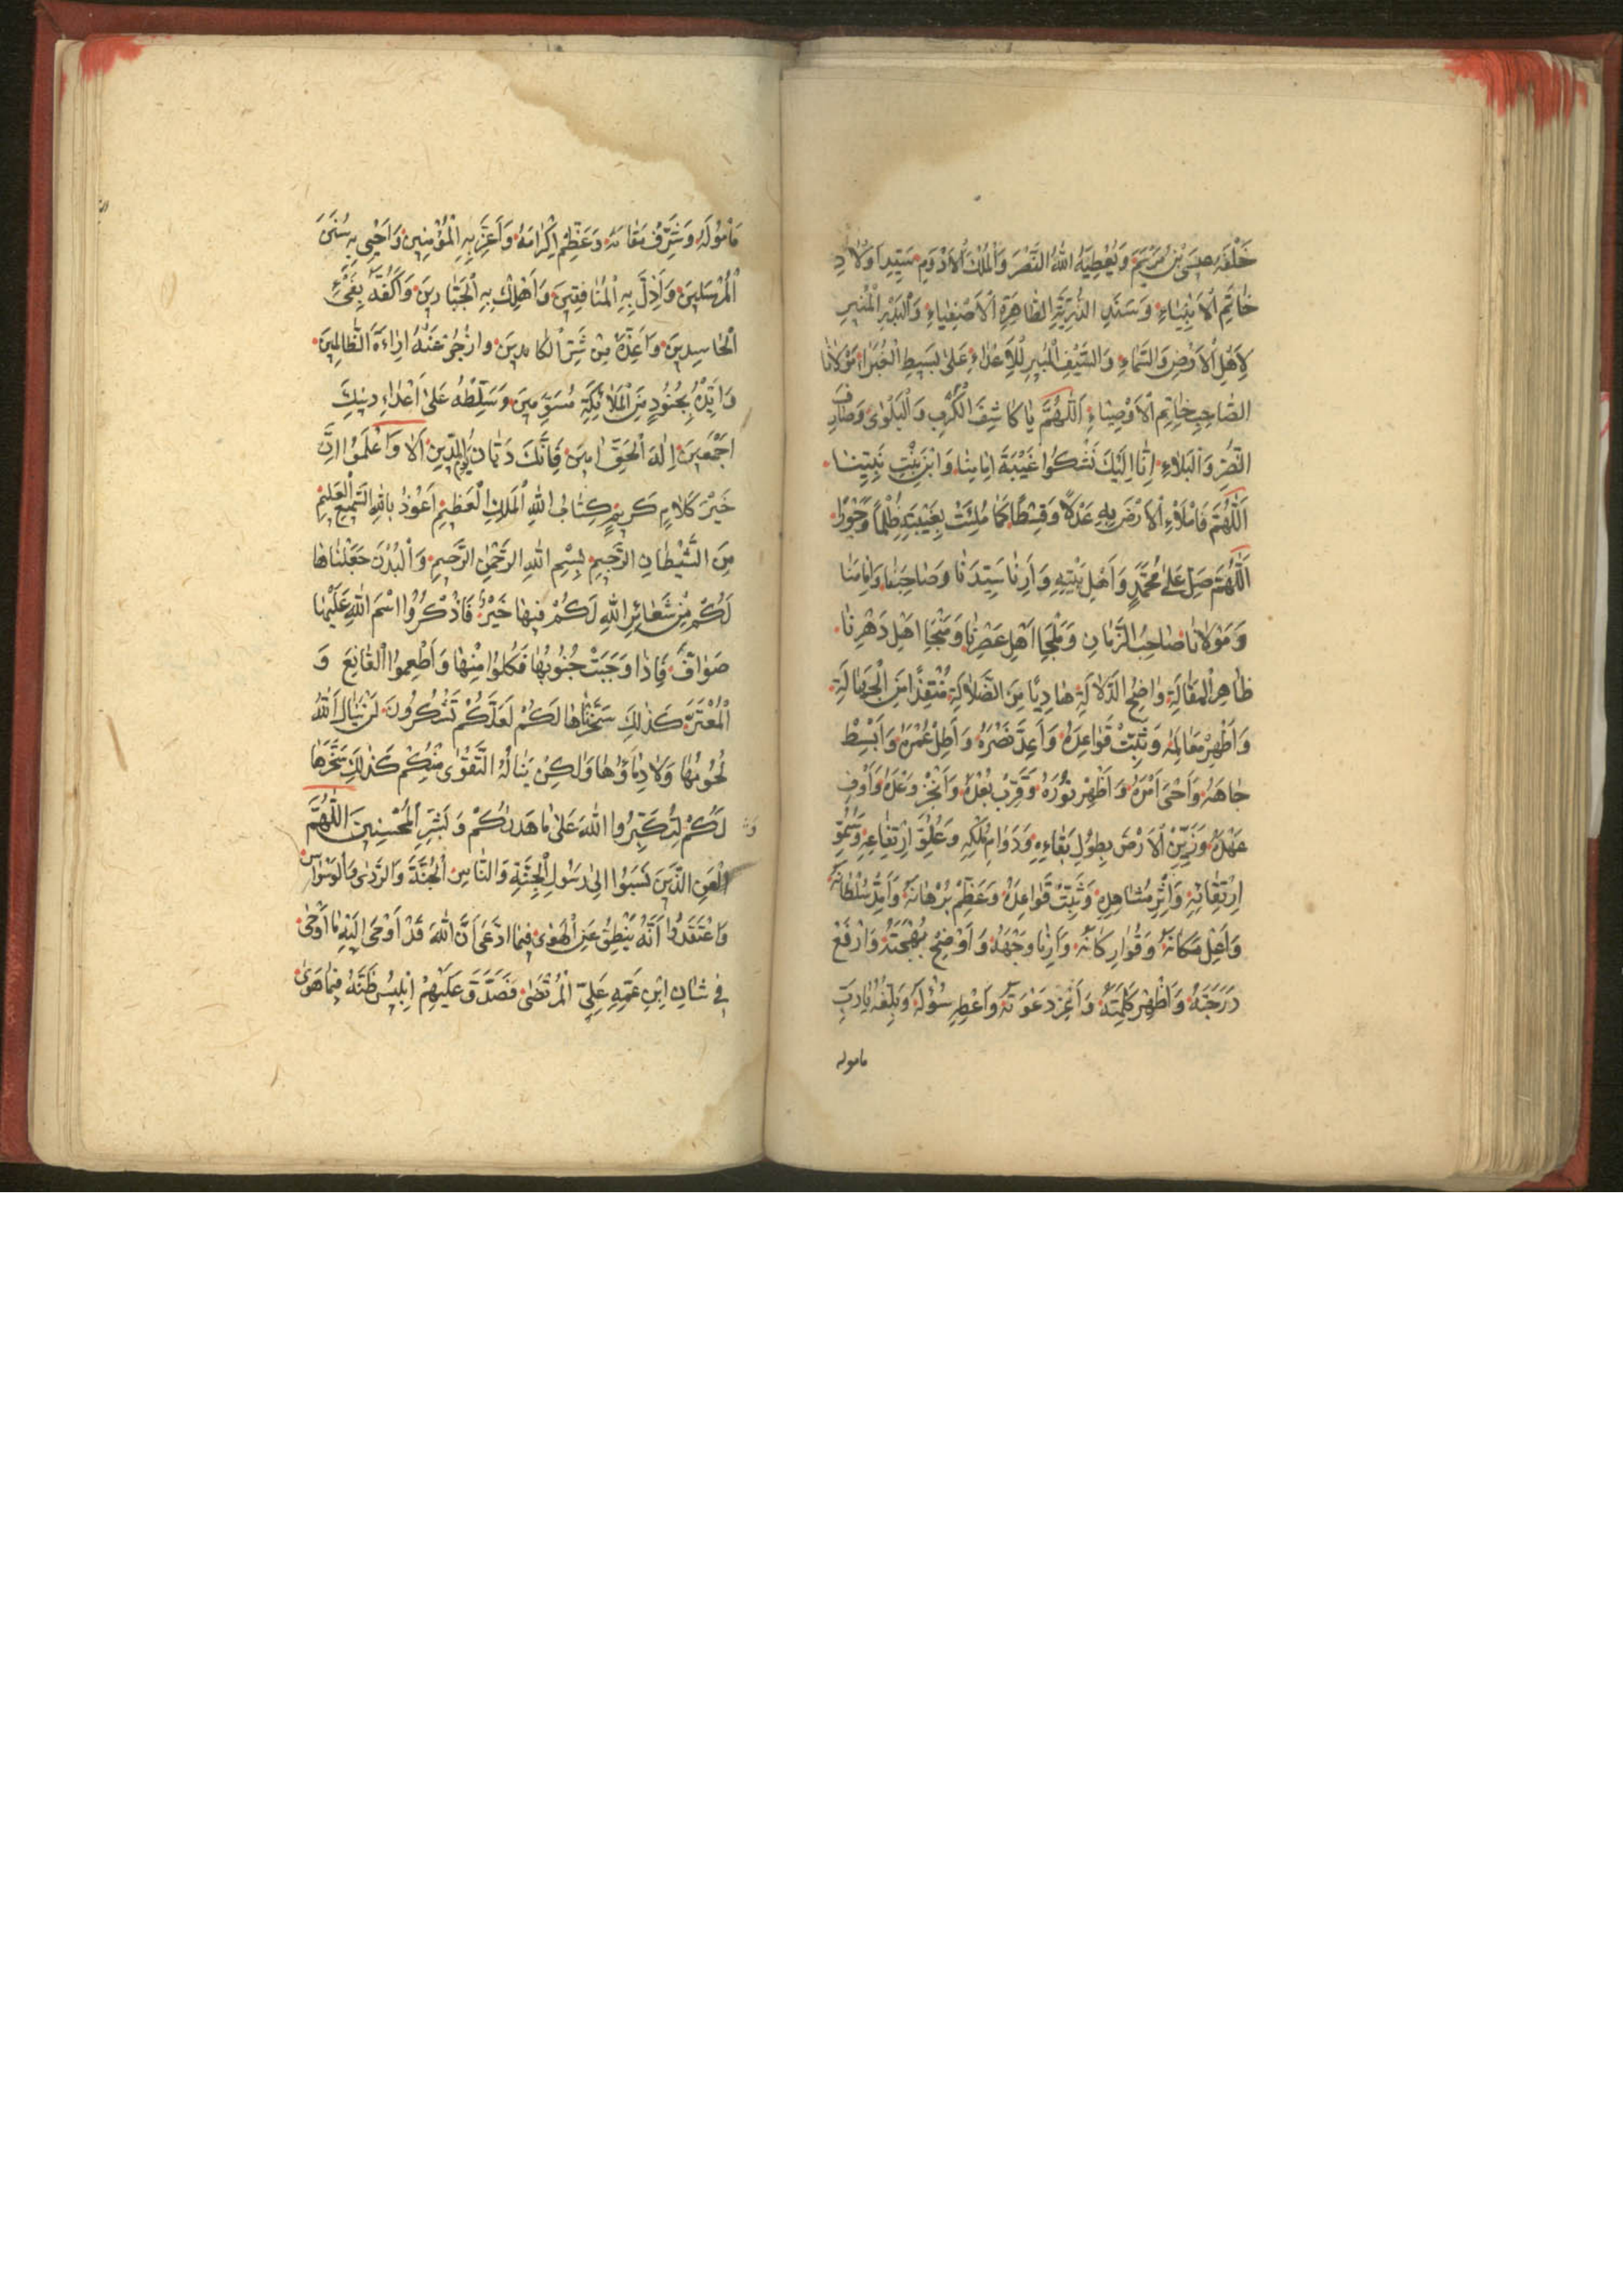 خَلْفَهُ عِيسَى بْنُ مَرْيَمَ وَيُعْطِيَهُ اللهُ النَّصْرَ وَالْمُلْكَ الْأَدْوَمَ سَيِّدِ أَوْلَادِ
خَاتِمِ الْأَنْبِيَاءِ وَسَنَدِ الذُّرِّيَّةِ الطَّاهِرَةِ الْأَصْفِيَاءِ وَالْبَدْرِ الْمُنِيرِ
لِأَهْلِ الْأَرْضِ وَالسَّمَاءِ وَالسَّيْفِ الْمُبِيرِ لِلْأَعْدَاءِ عَلَى بَسِيطِ الْغَبْرَاءِ مَوْلَانَا
الصَّاحِبِ خَاتِمِ الْأَوْصِيَاءِ اَللّٰهُمَّ يَا كَاشِفَ الْكَرْبِ وَالْبَلْوَى وَصَارِفَ
الضُّرِّ وَالْبَلَاءِ إِنَّا إِلَيْكَ نَشْكُوا غَيْبَةَ إِمَامِنَا وَابْنِ بِنْتِ نَبِيِّنَا
اَللّٰهُمَّ فَامْلَاءِ الْأَرْضَ بِهِ عَدْلًا وَقِسْطًا كَمَا مُلِئَتْ بِغَيْبَتِهِ ظُلْمًا وَجَوْرًا
اَللّٰهُمَّ صَلِّ عَلَى مُحَمَّدٍ وَأَهْلِ بَيْتِهِ وَأَرِنَا سَيِّدَنَا وَصَاحِبَنَا وَإِمَامَنَا
وَمَوْلَانَا صَاحِبَ الزَّمَانِ وَمَلْجَأَ أَهْلِ عَصْرِنَا وَمَنْجَا أَهْلِ دَهْرِنَا
ظَاهِرَ الْمَقَالَةِ وَاضِحَ الدَّلَالَةِ هَادِيًا مِنَ الضَّلَالَةِ مُنْقِذًا مِنَ الْجَهَالَةِ
وَأَظْهِرْ مَعَالِمَهُ وَثَبِّتْ قَوَاعِدَهُ وَأَعِزَّ نَصْرَهُ وَأَطِلْ عُمْرَهُ وَابْسُطْ
جَاهَهُ وَأَحْيِ أَمْرَهُ وَأَظْهِرْ نُورَهُ وَقَرِّبْ بُعْدَهُ وَأَنْجِزْ وَعْدَهُ وَأَوْفِ
عَهْدَهُ وَزَيِّنِ الْأَرْضَ بِطُولِ بَقَاءِهِ وَدَوَامِ مُلْكِهِ وَعُلُوِّ ارْتِقَاءِهِ وَسُمُوِّ
ارْتِفَاعِهِ وَأَنِرْ مَشَاهِدَهُ وَثَبِّتْ قَوَاعِدَهُ وَعَظِّمْ بُرْهَانَهُ وَأَمِدَّ سُلْطَانَهُ
وَأَعْلِ مَكَانَهُ وَقَوِّ أَرْكَانَهُ وَأَرِنَا وَجْهَهُ وَأَوْضِحْ بَهْجَتَهُ وَارْفَعْ
دَرَجَتَهُ وَأَظْهِرْ كَلِمَتَهُ وَأَعِزَّ دَعْوَتَهُ وَأَعْطِهِ سُؤْلَهُ وَبَلِّغْهُ يَا رَبِّ
ماموله
مَأْمُولَهُ وَشَرِّفْ مَقَامَهُ وَعَظِّمْ إِكْرَامَهُ وَأَعِزَّ بِهِ الْمُؤْمِنِينَ وَأَحْيِ بِهِ سُنَنَ
الْمُرْسَلِينَ وَأَذِلَّ بِهِ الْمُنَافِقِينَ وَأَهْلِكْ بِهِ الْجَبَّارِينَ وَاكْفِهِ بَغْيَ
الْحَاسِدِينَ وَأَعِذْهُ مِنْ شَرِّ الْكَائِدِينَ وَازْجُرْ عَنْهُ إِرَاءَةَ الظَّالِمِينَ
وَأَيِّدْهُ بِجُنُودٍ مِنَ الْمَلَائِكَةِ مُسَوِّمِينَ وَسَلِّطْهُ عَلَى أَعْدَاءِ دِينِكَ
أَجْمَعِينَ إِلٰهَ الْحَقِّ آمِينَ فَإِنَّكَ دَيَّانُ يَوْمِ الدِّينِ أَلَا وَاعْلَمُوا إِنَّ
خَيْرَ كَلَامٍ كَرِيمٍ كِتَابُ اللهِ الْمَلِكِ الْعَظِيمِ أَعُوذُ بِاللهِ السَّمِيعِ الْعَلِيمِ
مِنَ الشَّيْطَانِ الرَّجِيمِ بِسْمِ اللهِ الرَّحْمٰنِ الرَّحِيمِ وَالْبُدْنَ جَعَلْنَاهَا
لَكُمْ مِنْ شَعَائِرِ اللهِ لَكُمْ فِيهَا خَيْرٌ فَاذْكُرُوا اسْمَ اللهِ عَلَيْهَا
صَوَافَّ فَإِذَا وَجَبَتْ جُنُوبُهَا فَكُلُوا مِنْهَا وَأَطْعِمُوا الْقَانِعَ وَ
الْمُعْتَرَّ كَذٰلِكَ سَخَّرْنَاهَا لَكُمْ لَعَلَّكُمْ تَشْكُرُونَ لَنْ يَنَالَ اللهَ
لُحُومُهَا وَلَا دِمَاؤُهَا وَلٰكِنْ يَنَالُهُ التَّقْوَى مِنْكُمْ كَذٰلِكَ سَخَّرَهَا
لَكُمْ لِتُكَبِّرُوا اللهَ عَلَى مَا هَدٰيكُمْ وَبَشِّرِ الْمُحْسِنِينَ اَللّٰهُمَّ
الْعَنِ الَّذِينَ نَسَبُوا إِلَى رَسُولِ الْجِنَّةِ وَالنَّاسِ الْجُنَّةَ وَالرَّدَى وَالْوَسْوَاسَ
وَاعْتَقَدُوا أَنَّهُ يَنْطِقُ عَنِ الْهَوَى فِيمَا ادَّعَى أَنَّ اللهَ قَدْ أَوْحَى إِلَيْهِ مَا أَوْحَى
فِي شَانِ ابْنِ عَمِّهِ عَلِيٍّ الْمُرْتَضَى فَصَدَّقَ عَلَيْهِمْ إِبْلِيسُ ظَنَّهُ فِيمَا هَوَى